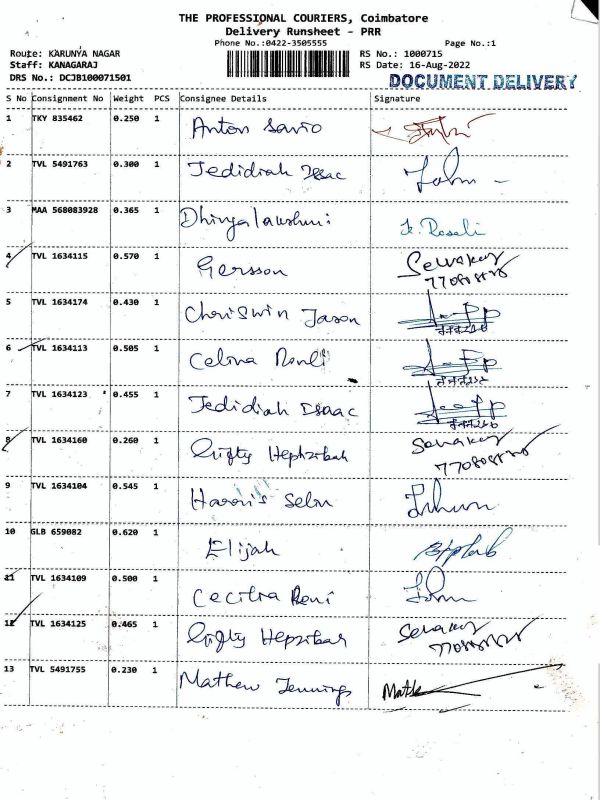 THE PROFESSIONAL COURIERS, Coimbatore
Delivery Runsheet - PRR
Phone No.:0422-3505555
Page No.:1
Route: KARUNYA NAGAR
RS No.: 1000715
Staff: KANAGARAJ
RS Date: 16-Aug-2022
DRS No.: DCJB100071501
DOCUMENT DELIVERY
S No Consignment No Weight PCS Consignee Details Signature
1 TKY 835462 0.250 1 Anton Savio
2 TVL 5491763 0.300 1 Jedidiah Issac John
3 MAA 568083928 0.365 1 Dhivyalakshmi
4 TVL 1634115 0.570 1 Gersson
5 TVL 1634174 0.430 1 Cheriswin Jason
6 TVL 1634113 0.505 1 Celina
7 TVL 1634123 0.455 1 Jedidiah Isaac
8 TVL 1634160 0.260 1 Gifty Hephzibah
9 TVL 1634104 0.545 1 Harris Selin
10 GLB 659082 0.620 1 Elijah
11 TVL 1634109 0.500 1 Cecilia Reni
12 TVL 1634125 0.465 1 Gifty Hepzibah
13 TVL 5491755 0.230 1 Mathew Jennings